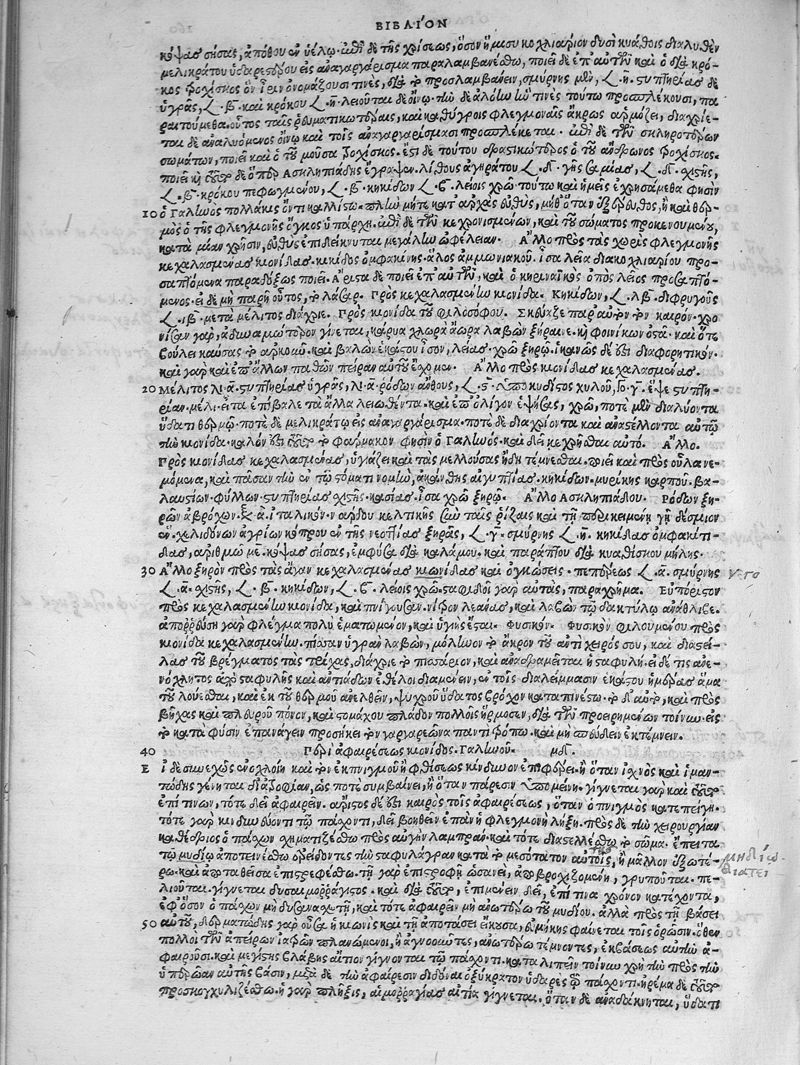 ΒΙΒΛΙΟΝ
κόψας σήσας, ἀπόθου ἐν ὑέλῳ. ἐπὶ δὲ τῆς χρίσεως, ὅσον ἥμισυ κοχλιαρίου δυσὶ κυάθοις διαλυθὲν
μελικράτου ὑδαρεστέρου εἰς ἀναγαργάρισμα παραλαμβανέσθω, ποιεῖ δὲ ἐπ' αὐτῶν καὶ ὁ διὰ κρό-
κος τροχίσκος ὃν ἶριν ὀνομάζουσι τινὲς, διὰ τὸ προσλαμβάνειν, σμύρνης μὲν, η. στυπτηρίας δὲ
ὑγρᾶς, β. καὶ κρόκου η. λειοῦται δὲ οἴνῳ. τὴν δὲ ἀλόην ἣν τινὲς τούτῳ προσπλέκουσι, πα
ραιτούμεθα. οὗτος ταῖς ῥευματικωτέραις, καὶ καθύγροις φλεγμοναῖς ἄκρως ἁρμόζει, διαχρίε-
ται δὲ ἀναλυόμενος οἴνῳ καὶ τοῖς ἀναγαργαρίσμασι προσπλέκεται. ἐπὶ δὲ τῶν σκληροτέρων
σωμάτων, ποιεῖ καὶ ὁ τοῦ μούσα τροχίσκος. ἔστι δὲ τούτου δραστικώτερος ὁ τοῦ ἄνδρωνος τροχίσκος.
ποιεῖ καὶ τοῦτο δὲ ὅπερ Ἀσκληπιάδης ἔγραψεν. λίθου ἀγηράτου δ. γῆς σαμίας, δ. σχιστῆς,
β. κρόκου πεφωγμένου, β. κηκίδων, ϛ. λείοις χρῶ. τούτῳ καὶ ἡμεῖς ἐχρησάμεθα φησὶν
10 ὁ Γαληνὸς πολλάκις ὄντι καλλίστῳ. πλὴν μήτε κατ' ἀρχὰς εὐθὺς, μήθ' ὅταν ἐξέρυθρος, ἢ καὶ θερ-
μὸς ὁ τῆς φλεγμονῆς ὄγκος ὑπάρχῃ. ἐπὶ δὲ τῶν κεχρονισμένων, καὶ τοῦ σώματος προκενουμένου,
κατὰ μίαν χρῆσιν, εὐθὺς ἐπιδείκνυται μεγάλην ὠφέλειαν. Ἄλλο πρὸς τὰς χωρὶς φλεγμονῆς
κεχαλασμένας κιονίδας. κηκίδος ὀμφακίνης. ἁλὸς ἀμμωνιακοῦ. ἴσα λεῖα διὰ κοχλιαρίου προ-
σαπτόμενα παραδόξως ποιεῖ. Ἄριστα δὲ ποιεῖ ἐπ' αὐτῶν, καὶ ὁ κηρηναϊκὸς ὀπὸς λεῖος προσαπτό-
μενος. εἰ δὲ μὴ παρῇ οὗτος, τὸ λάσερ. Πρὸς κεχαλασμένην κιονίδα. Κηκίδων, λβ. διφρυγοῦς
ιβ. μετὰ μέλιτος διάχριε. Πρὸς κιονίδα τοῦ φιλοσόφου. Σκεύαζε παρ' αὐτὸν τὸν καιρόν. χρο-
νίζον γὰρ, ἀδυναμώτερον γίνεται, κάρυα χλωρὰ ἄωρα λαβὼν ξήραινε. καὶ φοινίκων ὀστᾶ. καὶ ὅτε
βούλει καύσας τὸ ἀρκοῦν. καὶ βαλὼν ἑκάστου ἴσον, λείας χρῶ ξηρῷ. ἱκανῶς δέ ἐστι διαφορητικόν.
καὶ γὰρ καὶ ἐπ' ἄλλων παθῶν πεῖραν αὐτοῦ ἔχομεν. Ἄλλο πρὸς κιονίδας κεχαλασμένας.
20 Μέλιτος λι. α. στυπτηρίας ὑγρᾶς, λι. α. ῥόδων ἄνθους, ϛ. κυδίας χυλοῦ, γ. ἕψε στυπτη-
ρίαν. μέλι. εἶτα ἐπίβαλε τὰ ἄλλα λειωθέντα. καὶ ἐπ' ὀλίγον ἑψήσας, χρῶ, ποτὲ μὲν διαλύοντα
ὕδατι θερμῷ. ποτὲ δὲ μελικράτῳ εἰς ἀναγαργάρισμα. ποτὲ δὲ διαχρίοντα καὶ ἀναστέλλοντας αὐτῷ
τὴν κιονίδα. καλόν ἐστι τοῦτο τὸ φάρμακον φησὶν ὁ Γαληνὸς. καὶ δεῖ κεχρῆσθαι αὐτό. Ἄλλο.
Πρὸς κιονίδας κεχαλασμένας, ὑγιάζει καὶ τὰς μελλούσας ἤδη τέμνεσθαι. ποιεῖ καὶ πρὸς οὖλα νε-
μόμενα, καὶ πᾶσαν τὴν ἐν τῷ στόματι νομὴν, ἀκάνθης αἰγυπτίας. κηκίδων. μυρίκης καρποῦ. βα-
λαυστίων. φύλλων. στυπτηρίας σχιστῆς. κασίας. ἴσα χρῶ ξηρῷ. Ἄλλο Ἀσκληπιάδου. Ῥόδων ξη-
ρῶν ἀβρόχων. ἰταλικὸν. νάρδου κελτικῆς σὺν ταῖς ῥίζαις καὶ τῇ περικειμένῃ γῇ δέσμιον
ἕν. χελιδόνων ἀγρίων κόπρου ἐν τῆς νεοττιᾶς ξηρᾶς, γ. σμύρνης η. κηκίδας ὀμφακίτι-
δας, ἀριθμῷ με. κόψας σήσας, ἐμφύσα διὰ καλάμου. καὶ παράπτου διὰ κυαθίσκου μήλης.
30 Ἄλλο ξηρὸν πρὸς τὰς ἄγαν κεχαλασμένας κιονίδας καὶ ὀγκώσεις. πεπέρεως α. σμύρνης
α. σχιστῆς, β. κηκίδων, ϛ. λείοις χρῶ. σταφιδοῖ γὰρ αὐτὰς, παραχρῆμα. Εὐπόριστον
πρὸς κεχαλασμένην κιονίδα, καὶ πνίγουσαν. νίτρον λεάνας, καὶ λαβὼν τῷ δακτύλῳ ἀνάθλιβε.
ἀπορρεύσῃ γὰρ φλέγμα πολὺ ἐματωμένον, καὶ ὑγιὴς ἔσται. Φυσικόν. Φυσικὸν φιλουμένου πρὸς
κιονίδα κεχαλασμένην. πίσσαν ὑγρὰν λαβὼν, μόλυνον τὸ ἄκρον τοῦ ἀντίχειρός σου, καὶ διαστεί-
λας τοῦ βρέγματος τὰς τρίχας, διάχριε τὸ πιττάριον, καὶ ἀναδραμεῖται ἡ σταφυλή. εἰ δέ τις ἀνε-
νόχλητος ἀπὸ σταφυλῆς καὶ ἀντιάδων ἐθέλοι διαμένειν, ἐν τοῖς διαλείμμασιν ἑκάστης ἡμέρας ἅμα
τοῦ λούεσθαι, καὶ ἐκ τοῦ θερμοῦ ἀνελθεῖν, ψυχροῦ ὕδατος βρόχον καταπινέτω. τὸ δ' αὐτὸ, καὶ πρὸς
βῆχας καὶ πλευροῦ πόνον, καὶ στομάχου πλάδον πολλοῖς ἥρμοσεν. διὰ τῶν προειρημένων τοίνυν εἰς
τὸ κατὰ φύσιν ἐπανάγειν προσήκει τὸν γαργαρεῶνα παντὶ τρόπῳ. καὶ μὴ σπεύδειν ἐκτέμνειν.
40 Περὶ ἀφαιρέσεως κιονίδος. Γαληνοῦ. μδ.
Ε ἰ δὲ συνεχῶς ἐνοχλοίη καὶ τὸν ἐκ πνιγμοῦ ἢ φθίσεως κίνδυνον ἐπιφέροι. ἢ ὅταν ἰχνὸς καὶ ἱμαν-
τώδης γένηται διάβροσιν, ὥς ποτε συμβαίνει, ἢ ὅταν πάρεσιν ὑπομείνῃ. γίγνεται γὰρ καὶ τοῦτο
ἐπί τινων, τότε δεῖ ἀφαιρεῖν. ἄριστος δέ ἐστι καιρὸς τοῖς ἀφαιρέσεως, ὅταν ὁ πνιγμὸς κατεπείγῃ.
τότε γὰρ κινδυνεύοντι τῷ πάσχοντι, δεῖ βοηθεῖν ἐπὰν ἡ φλεγμονὴ λήξῃ. πρὸς δὲ τὴν χειρουργίαν
καθέδριος ὁ πάσχων σχηματιζέσθω πρὸς αὐγὴν λαμπράν. καὶ τότε διαστελλέσθω τὸ στόμα. ἔπειτα
τῷ μυδίῳ ἀποτεινέσθω ἐρείδοντες τὴν σταφυλάγραν κατὰ τὸ μεσότατον αὐτοῖς, ἢ μᾶλλον ἐξωτέ-
ρω. καὶ ἀποταθεῖσα ἐπιστρεφέσθω. τῇ γὰρ ἐπιστροφῇ ὡσανεὶ, ἀποβροχιζομένη, γρυποῦται. πε-
λιοῦται. γίγνεται δυσαιμορράγιστος. καὶ διὰ τοῦτο, ἐπιμένειν δεῖ, ἐπί τινα χρόνον κατέχοντα,
ἐφ' ὅσον ὁ πάσχων μὴ δυσανασχετῇ, καὶ τότε ἀφαιρεῖν μὴ ἀνωτέρω τοῦ μυδίου. ἀλλὰ πρὸς τῇ βάσει
50 αὐτοῦ, δερματώδης γὰρ οὖσα ἡ κιονὶς καὶ τῇ ἀποτάσει εἴκουσα, εὐμήκης φαίνεται τοῖς ὁρῶσιν. ὅθεν
πολλοὶ τῶν ἀπείρων ἰατρῶν πλανώμενοι, ἢ ἀγνοοῦντες, ἀνωτέρω τέμνοντες, ἐκ βάσεως αὐτὴν ἀ-
φαιροῦσι. καὶ μεγίστης βλάβης αἴτιοι γίγνονται τῷ πάσχοντι. καταλιπεῖν τοίνυν χρὴ τὴν πρὸς τὴν
ὑπερῴαν αὐτῆς βάσιν, μετὰ δὲ τὴν ἀφαίρεσιν διδόναι ὀξύκρατον ὑδαρὲς τῷ πάσχοντι. ἠρέμα δὲ τοῦτο
προσκογχυλιζέσθω. ἡ γὰρ πλῆξις, αἱμορραγίας αἰτία γίγνεται. ὅταν δὲ ἀνασπάκηται, ὕδατι